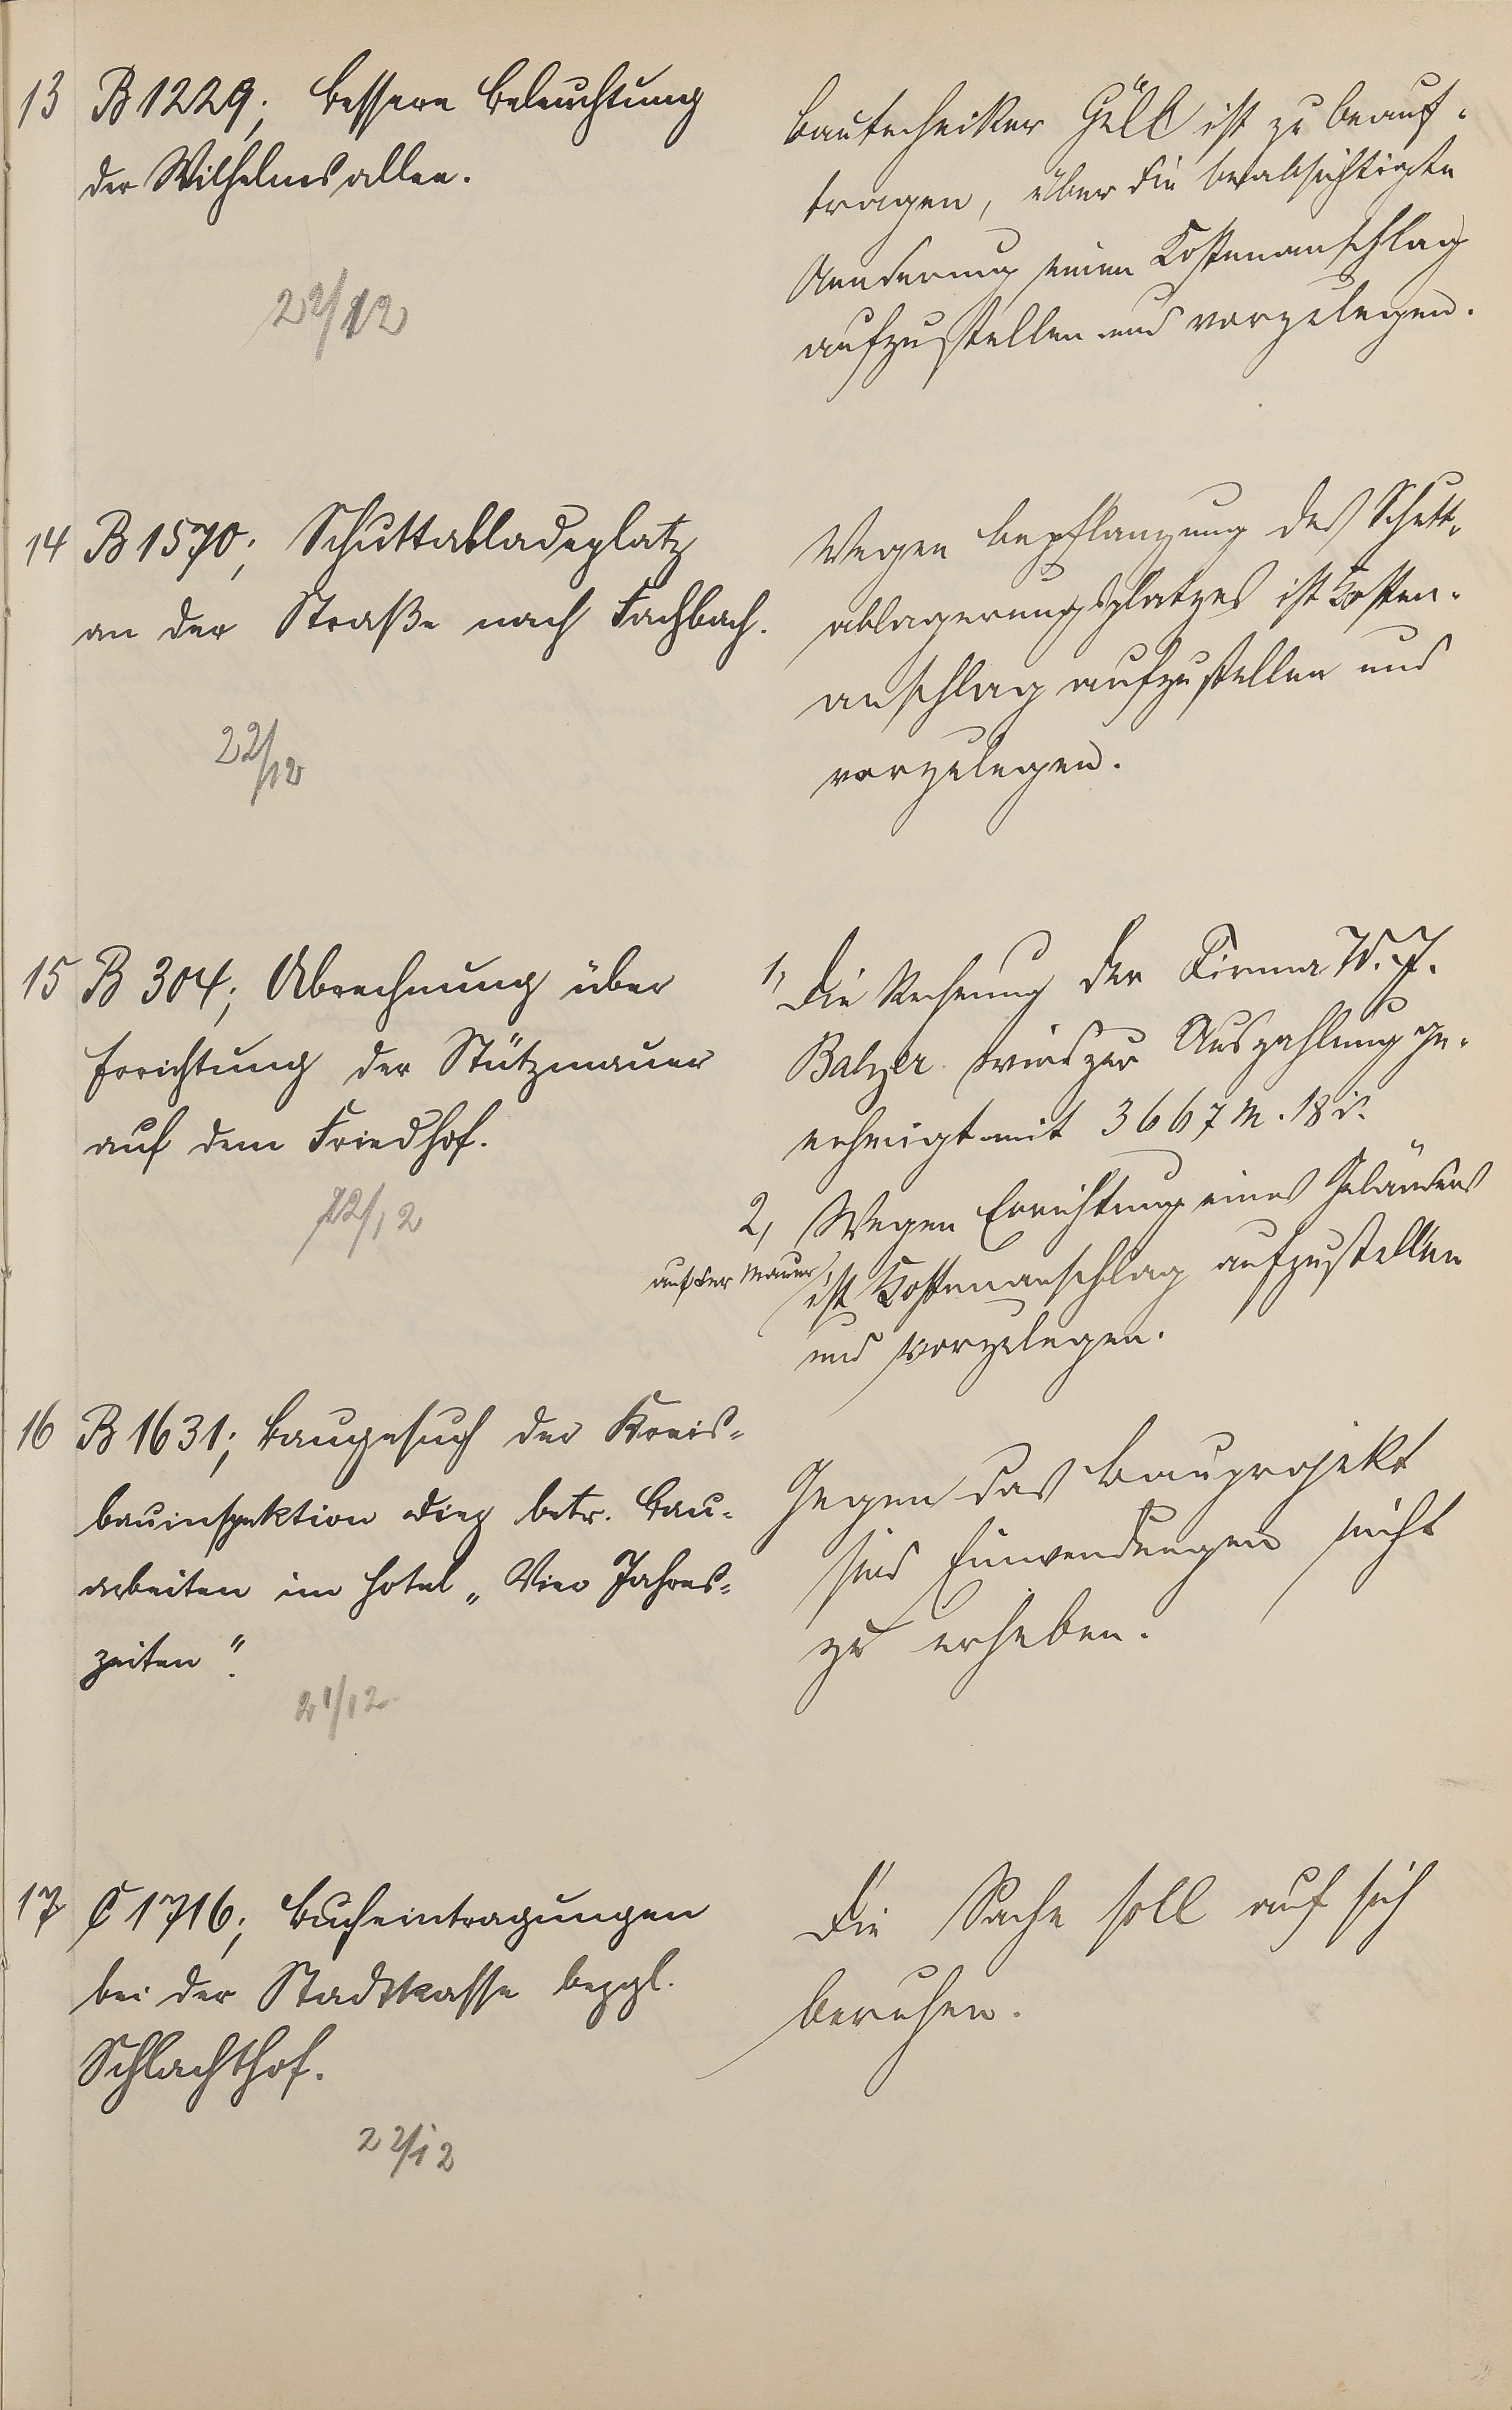 13 B 1229; bessere Beleuchtung
der Wilhelmsallee.
22/12
Bautechniker Güll ist zu beauf-
tragen, über die beabsichtigte
Aenderung einen Kostenanschlag
aufzustellen und vorzulegen.
14 B 1570; Schuttabladeplatz
an der Straße nach Fachbach.
22/12
Wegen Bepflanzung des Schutt-
ablagerungsplatzes ist Kosten-
anschlag aufzustellen und
vorzulegen.
15 B 304; Abrechnung über
Errichtung der Stützmauer
auf dem Friedhof.
22/12
1, Die Rechnung der Firma W. J.
Balzer wird zur Auszahlung ge-
nehmigt mit 3667 M. 18 d.
2, Wegen Errichtung eines Geländers
auf der Mauer ist Kostenanschlag aufzustellen
und vorzulegen.
16 B 1631; Baugesuch der Kreis-
bauinspektion Diez betr. Bau-
arbeiten im Hotel „Vier Jahres-
zeiten".
21/12
Gegen das Bauprojekt
sind Einwendungen nicht
zu erheben.
17 C 1716; Bucheintragungen
bei der Stadtkasse bezgl.
Schlachthof.
22/12
Die Sache soll auf sich
beruhen.